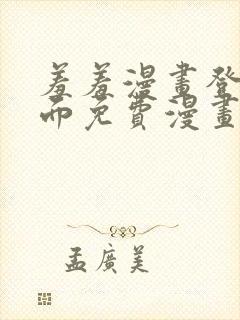 羞羞漫畫登
面免費漫畫
孟廣美